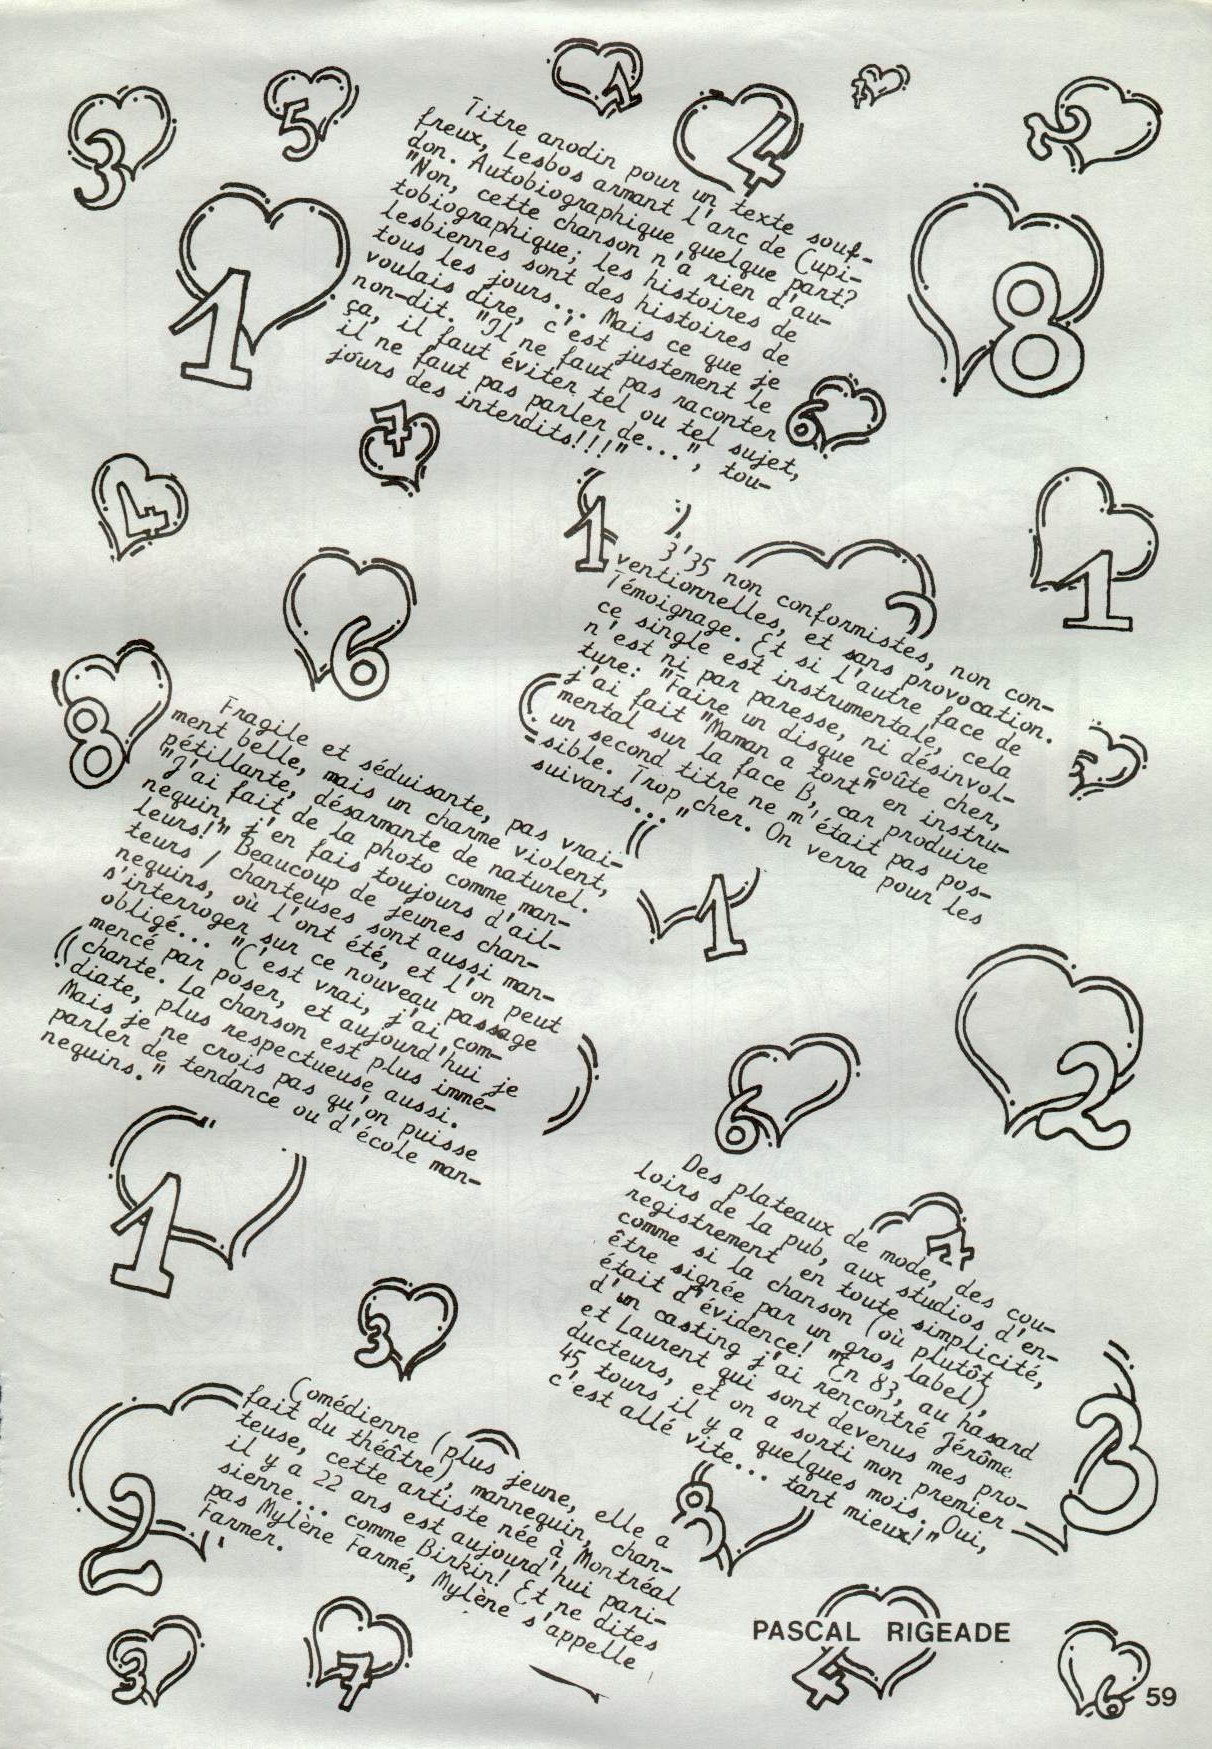 Titre anodin pour un texte souf-
freux, Lesbos armant l'arc de Cupi-
don. Autobiographique quelque part?
"Non, cette chanson n'a rien d'au-
tobiographique; les histoires de
lesbiennes sont des histoires de
tous les jours... Mais ce que je
voulais dire, c'est justement le
non-dit. "Il ne faut pas raconter
ça, il faut éviter tel ou tel sujet,
il ne faut pas parler de...", tou-
jours des interdits!!!"
3'35 non conformistes, non con-
ventionnelles, et sans provocation.
Témoignage. Et si l'autre face de
ce single est instrumentale, cela
n'est ni par paresse, ni désinvol-
ture: "Faire un disque coûte cher,
j'ai fait "Maman a tort" en instru-
mental sur la face B, car produire
un second titre ne m'était pas pos-
sible. Trop cher. On verra pour les
suivants..."
Fragile et séduisante, pas vrai-
ment belle, mais un charme violent,
pétillante, désarmante de naturel.
"J'ai fait de la photo comme man-
nequin, j'en fais toujours d'ail-
leurs!" Beaucoup de jeunes chan-
teurs / chanteuses sont aussi man-
nequins, où l'ont été, et l'on peut
s'interroger sur ce nouveau passage
obligé... "C'est vrai, j'ai com-
mencé par poser, et aujourd'hui je
chante. La chanson est plus immé-
diate, plus respectueuse aussi.
Mais je ne crois pas qu'on puisse
parler de tendance ou d'école man-
nequins."
Des plateaux de mode, des cou-
loirs de la pub, aux studios d'en-
registrement en toute simplicité,
comme si la chanson (où plutôt
être signée par un gros label),
était d'évidence! "En 83, au hasard
d'un casting j'ai rencontré Jérôme
et Laurent qui sont devenus mes pro-
ducteurs, et on a sorti mon premier
45 tours il y a quelques mois. Oui,
c'est allé vite... tant mieux!"
Comédienne (plus jeune, elle a
fait du théâtre), mannequin, chan-
teuse, cette artiste née à Montréal
il y a 22 ans est aujourd'hui pari-
sienne... comme Birkin! Et ne dites
pas Mylène Farmé, Mylène s'appelle
Farmer.
PASCAL RIGEADE
59